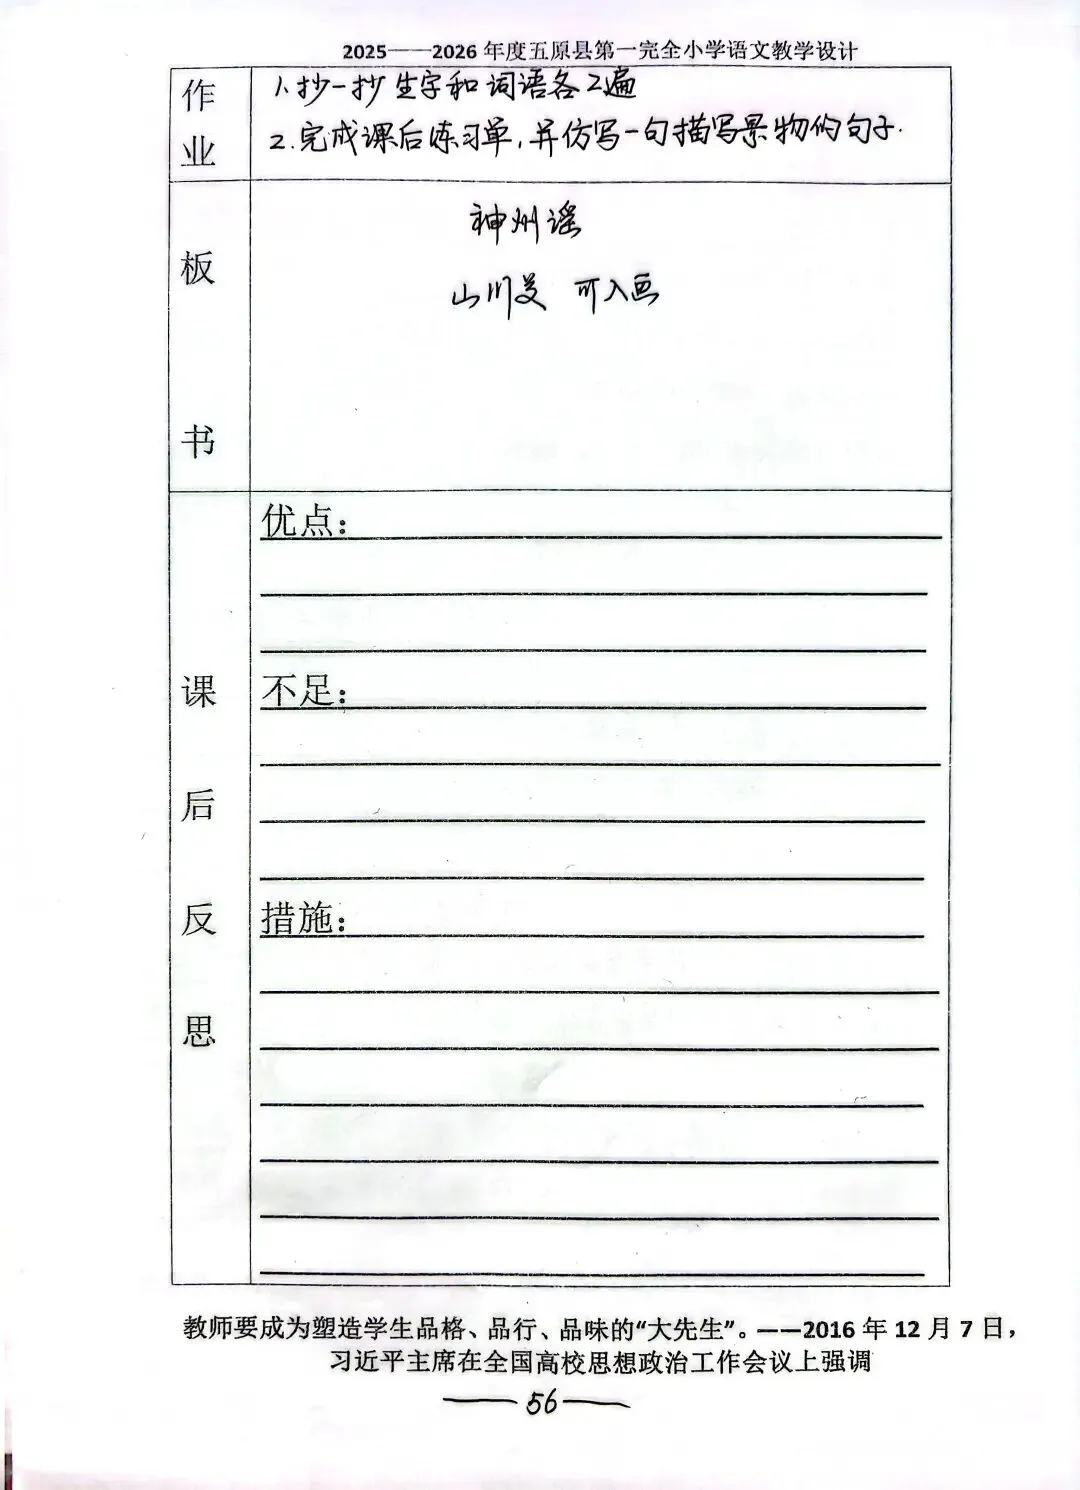 2025——2026 年度五原县第一完全小学语文教学设计
作业
1、抄一抄生字和词语各2遍
2.完成课后练习单,并仿写一句描写景物的句子.
板书
神州谣
山川美 可入画
课后反思
优点:
不足:
措施:
教师要成为塑造学生品格、品行、品味的“大先生”。——2016 年 12 月 7 日,
习近平主席在全国高校思想政治工作会议上强调
—56—